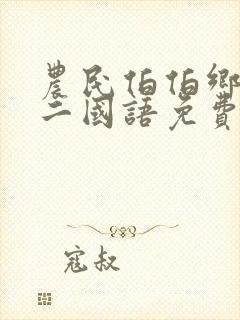 農民伯伯鄉
二國語免費
寇叔